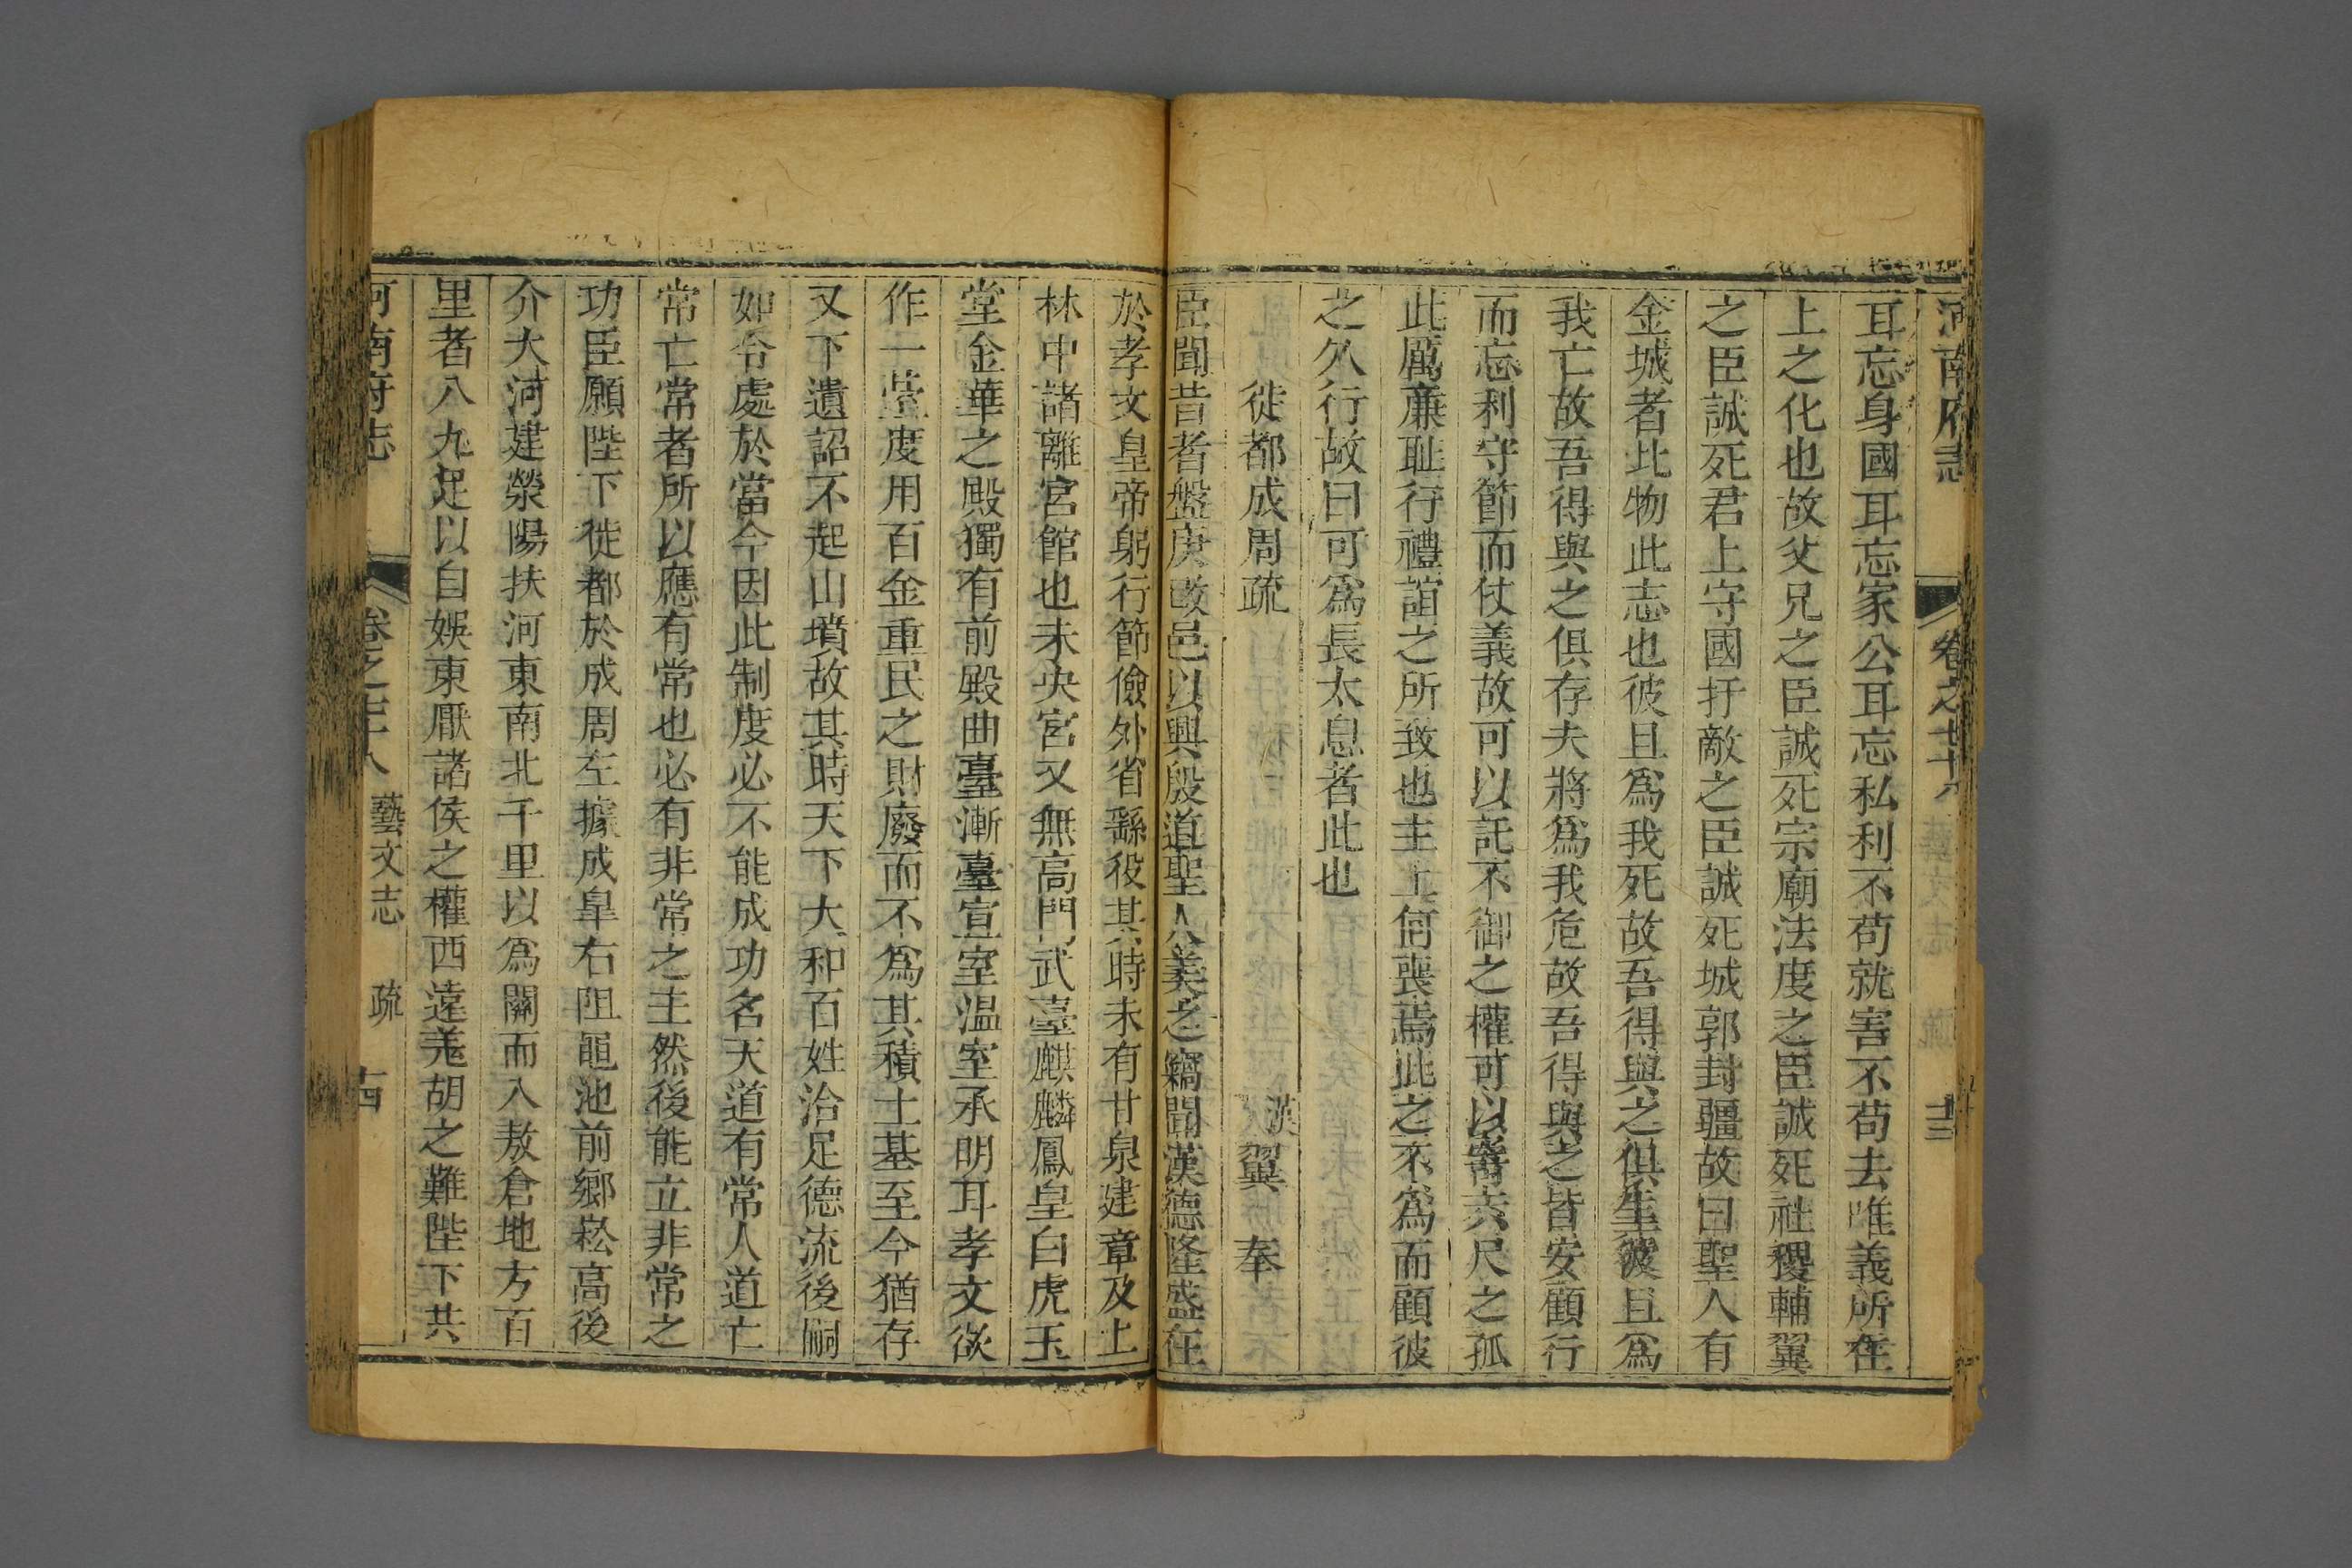 河南府志 卷之
耳忘身國耳忘家公耳忘私利不苟就害不苟去唯義所在
上之化也故父兄之臣誠死宗廟法度之臣誠死社稷輔翼
之臣誠死君上守國扞敵之臣誠死城郭封疆故曰聖人有
金城者比物此志也彼且爲我死故吾得與之俱生彼且爲
我亡故吾得與之俱存夫將爲我危故吾得與之皆安顧行
而忘利守節而仗義故可以託不御之權可以寄六尺之孤
此厲廉耻行禮誼之所致也主上何喪焉此之不爲而顧彼
之久行故曰可爲長太息者此也
徙都成周疏 漢 翼奉
臣聞昔者盤庚改邑以興殷道聖人美之竊聞漢德隆盛在
於孝文皇帝躬行節儉外省繇役其時未有甘泉建章及上
林中諸離宮館也未央宮又無高門武臺麒麟鳳皇白虎玉
堂金華之殿獨有前殿曲臺漸臺宣室溫室承明耳孝文欲
作一臺度用百金重民之財廢而不爲其積土基至今猶存
又下遺詔不起山墳故其時天下大和百姓洽足德流後嗣
如令處於當今因此制度必不能成功名天道有常人道亡
常亡常者所以應有常也必有非常之主然後能立非常之
功臣願陛下徙都於成周左據成皐右阻黽池前鄉崧高後
介大河建滎陽扶河東南北千里以爲關而入敖倉地方百
里者八九足以自娛東厭諸侯之權西遠羗胡之難陛下共
河南府志 卷之 八 藝文志 疏 十四